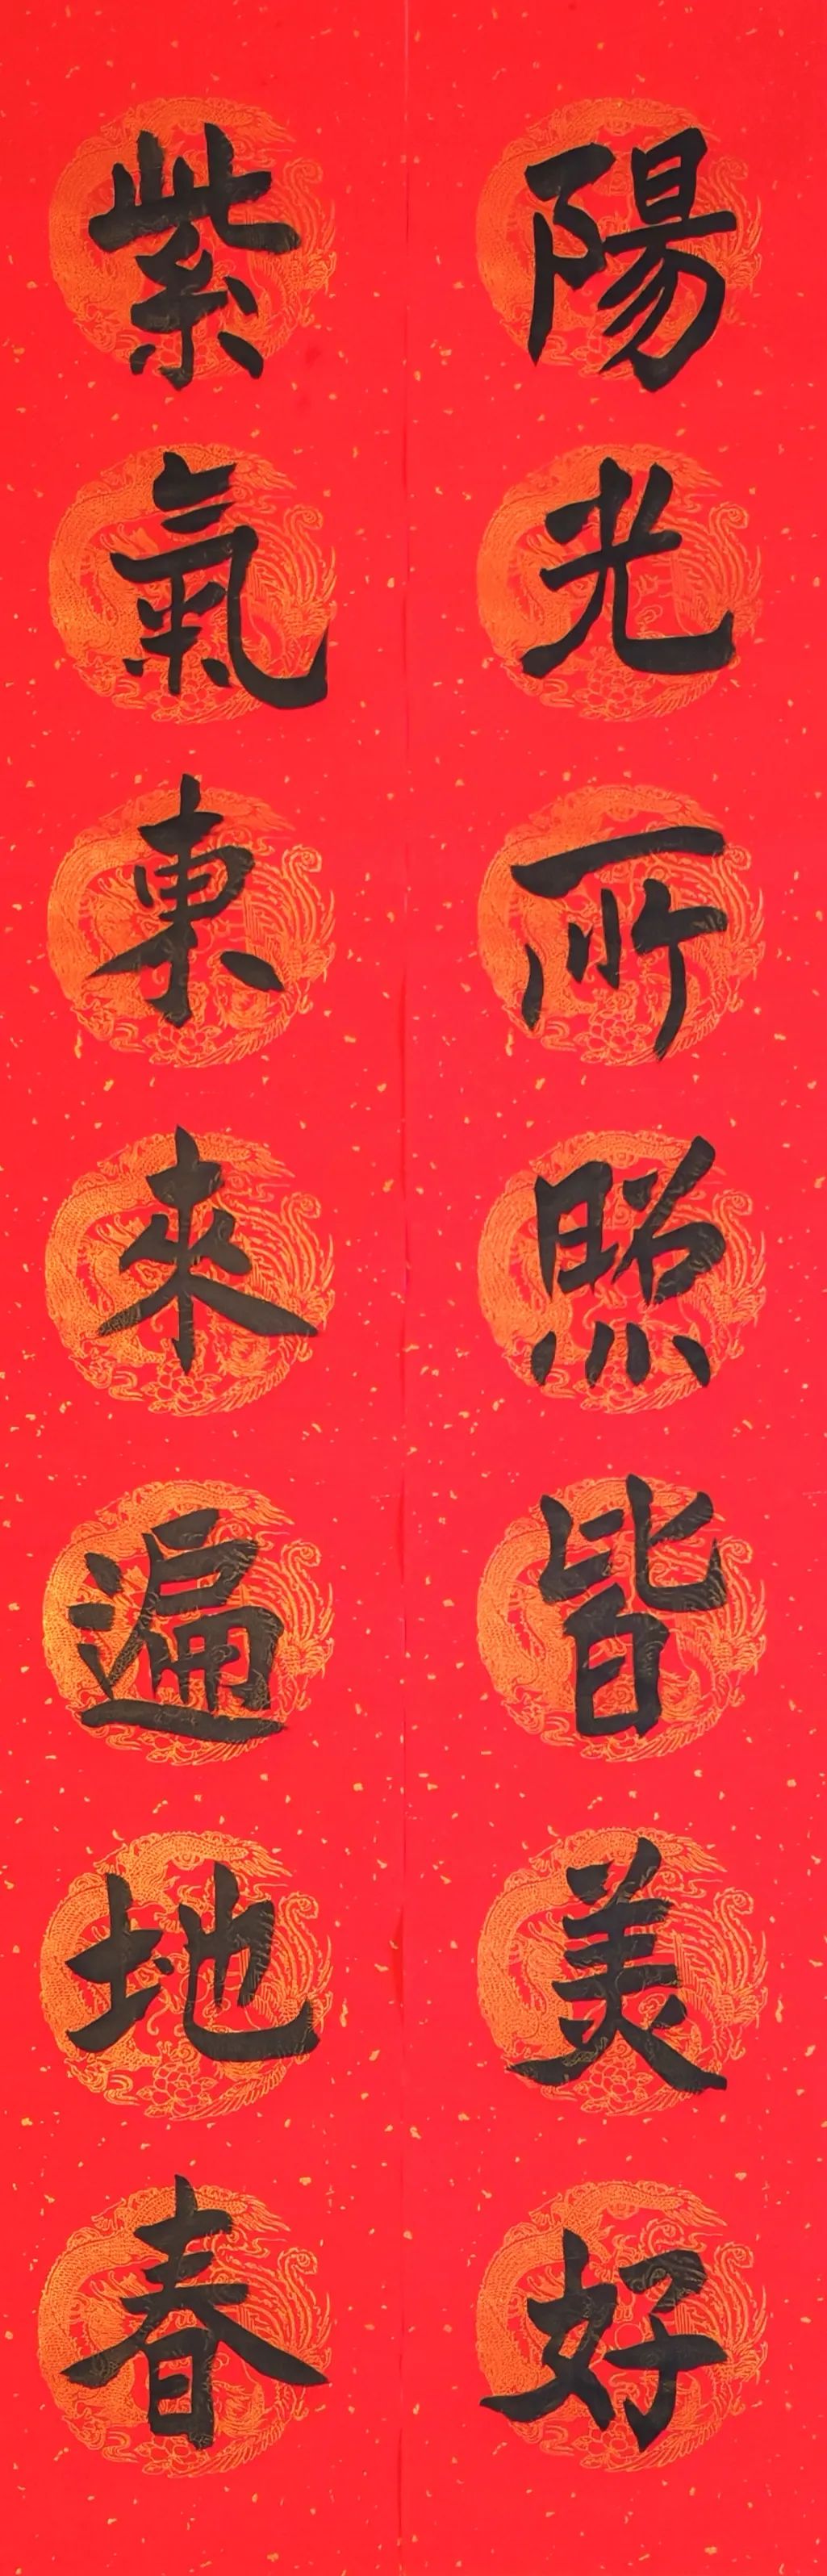 陽光所照皆美好
紫氣東來遍地春